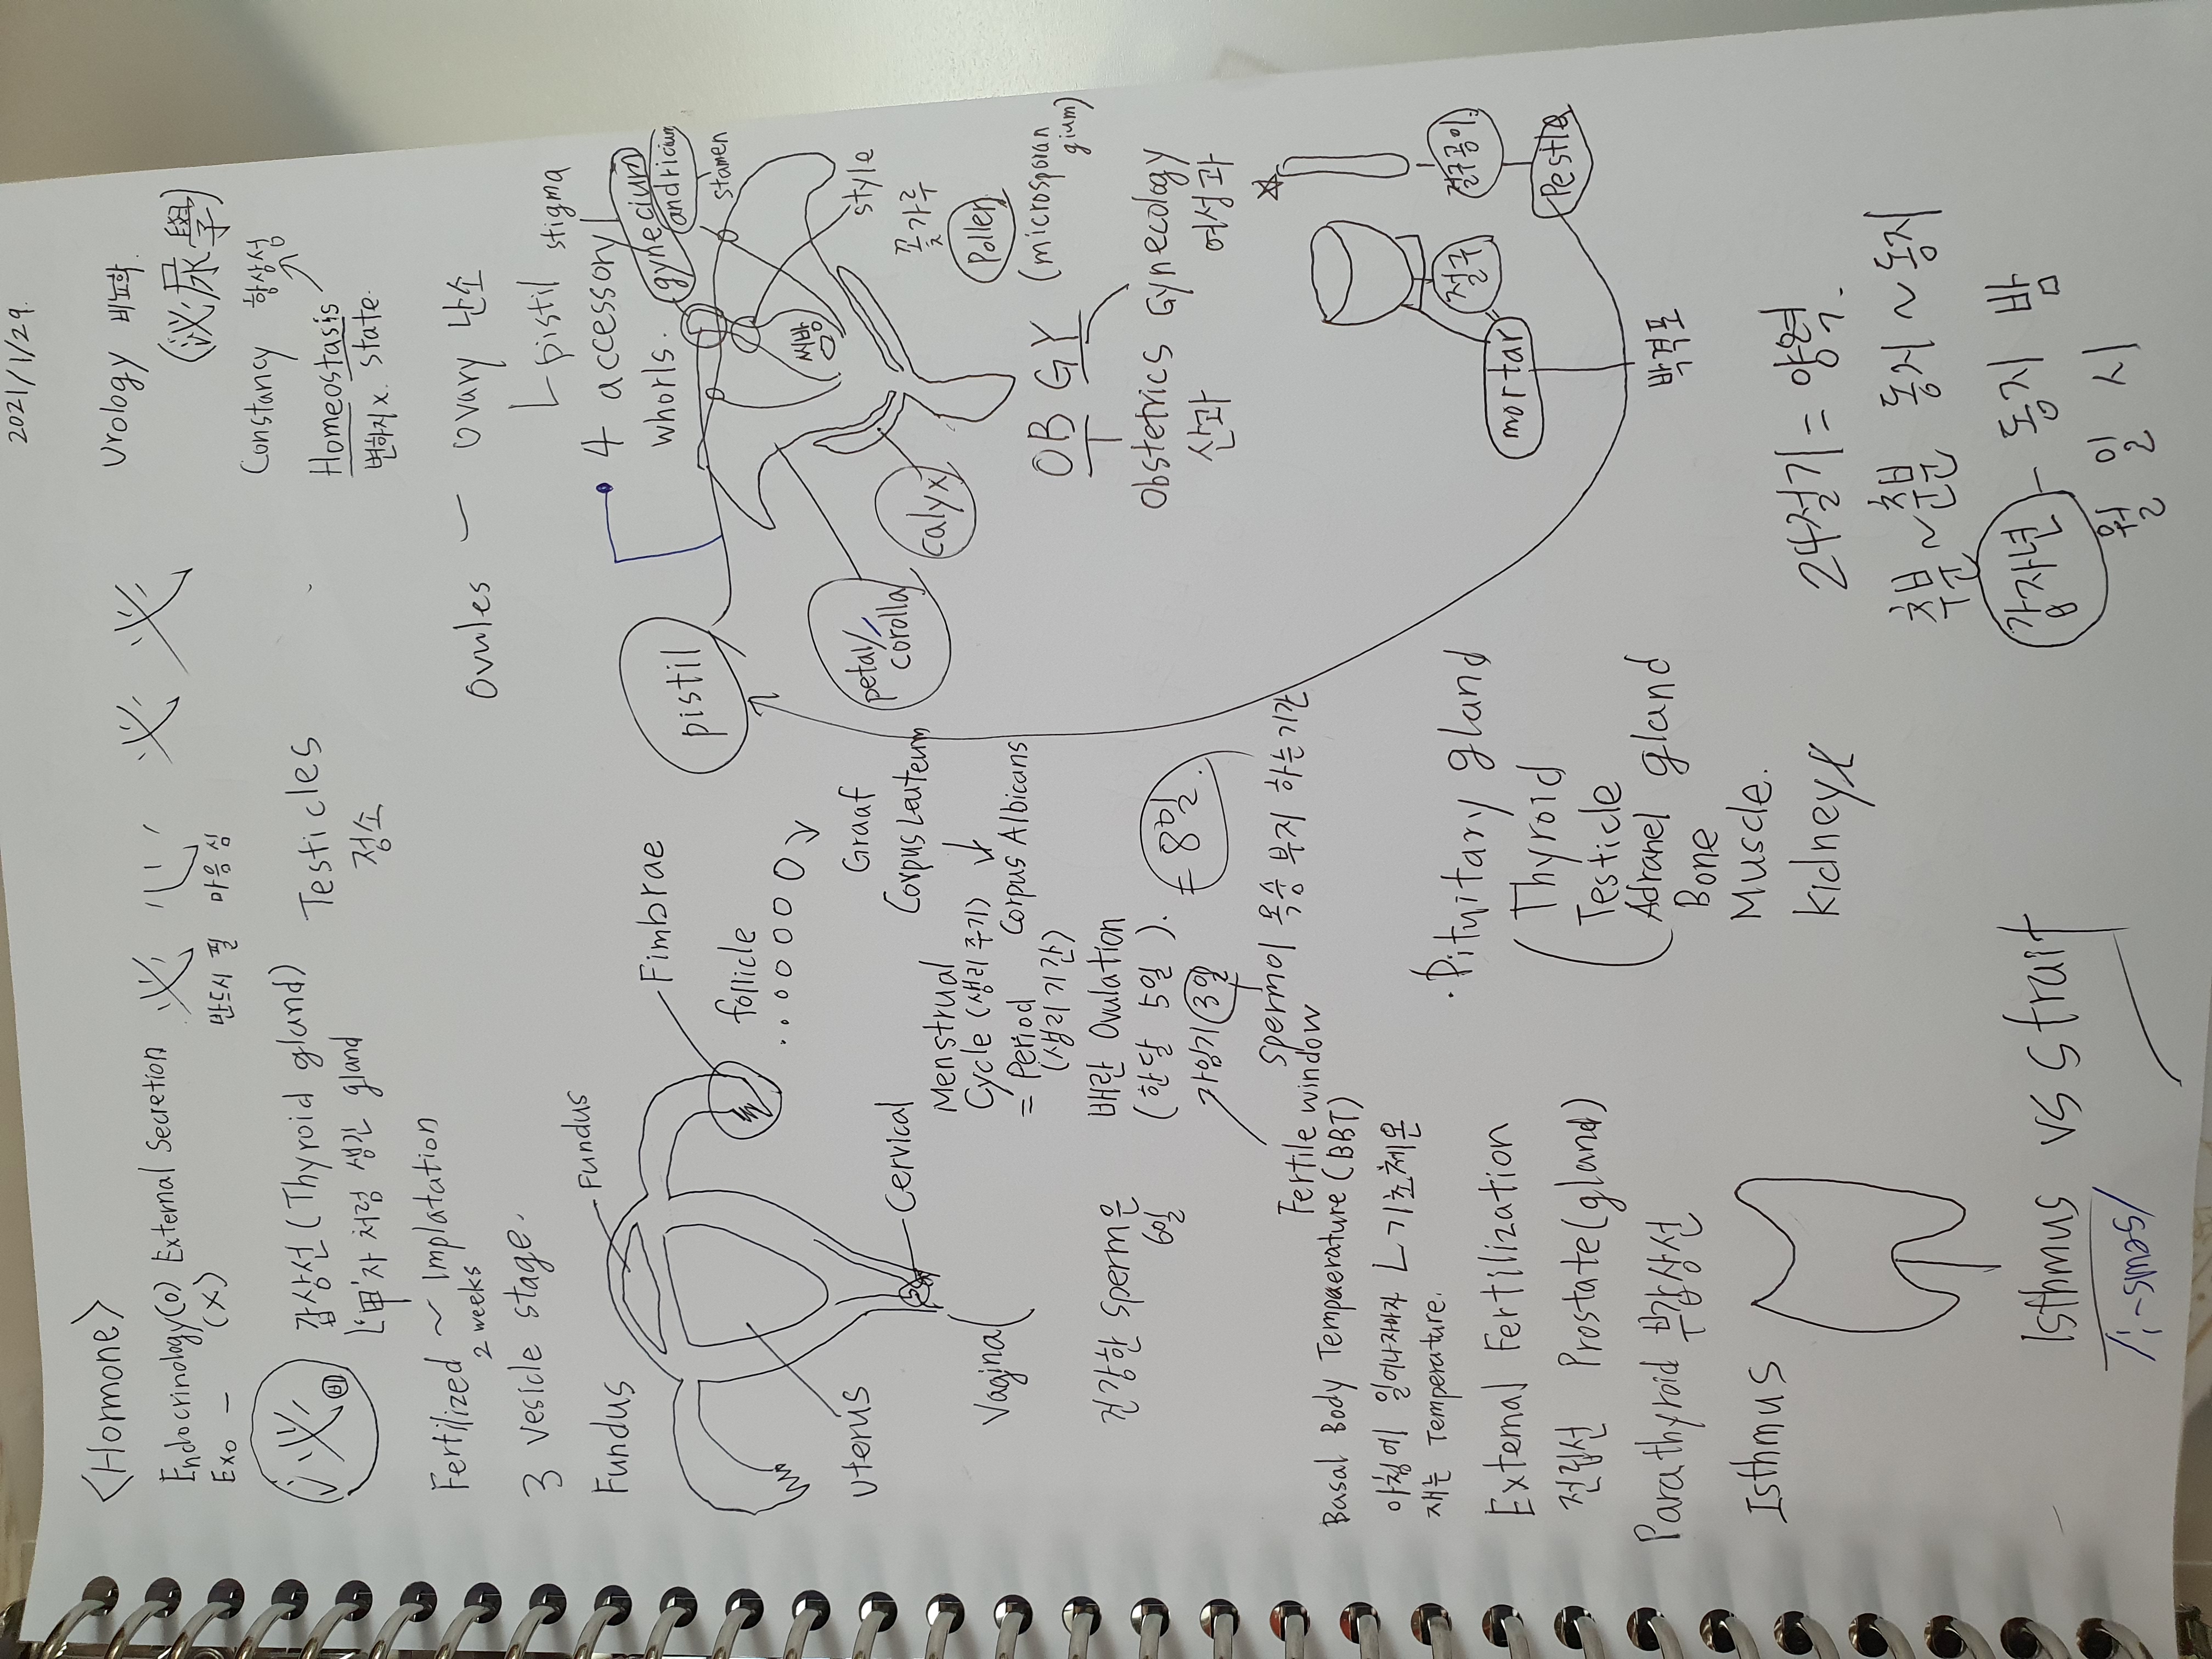 2021/1/29.
<Hormone>
Endocrinology(O) External Secretion
Exo - (X)
必 心 必 必
반드시 필 마음 심
Urology 비뇨학.
(泌尿學)
必 비
갑상선 (Thyroid gland)
└'甲'자 처럼 생긴 gland
Testicles
정소
Constancy 항상성
Homeostasis
변하지x. state.
Fertilized ~ Implatation
2 weeks
3 vesicle stage.
Ovules - ovary 난소
└ pistil stigma
• 4 accessory
whorls.
gynecium
andricium
stamen
style
씨방
pistil
petal/
corolla
calyx
꽃가루
Pollen
(microsporan
gium)
Fundus
Fundus
Fimbrae
follicle
Graaf
Corpus Leuteum
Corpus Albicans
Uterus
Vaginal
Cervical
Menstrual
Cycle (생리 주기)
= Period
(생리 기간)
배란 Ovulation
(한달 5일).
가임기 3일
= 8일.
Sperm이 목숨 부지 하는 기간
건강한 Sperm은
6일
Fertile window
OB GY
Obstetrics Gynecology
산과 여성과
☆
절구
절구공이.
mortar
Pestle
박격포
Basal Body Tempaerature (BBT)
아침에 일어나자마자 └ 기초체온
재는 Temperature.
External Fertilization
전립선 Prostate (gland)
Parathyroid 부갑상선
Isthmus
• Pituitary gland
Thyroid
Testicle
Adranel gland
Bone
Muscle.
kidney
24절기 = 양력.
추분 ~ 춘분 동지 ~ 동지
갑자년 - 동지 밤
월 일 시
Isthmus vs Strait
/i-smas/